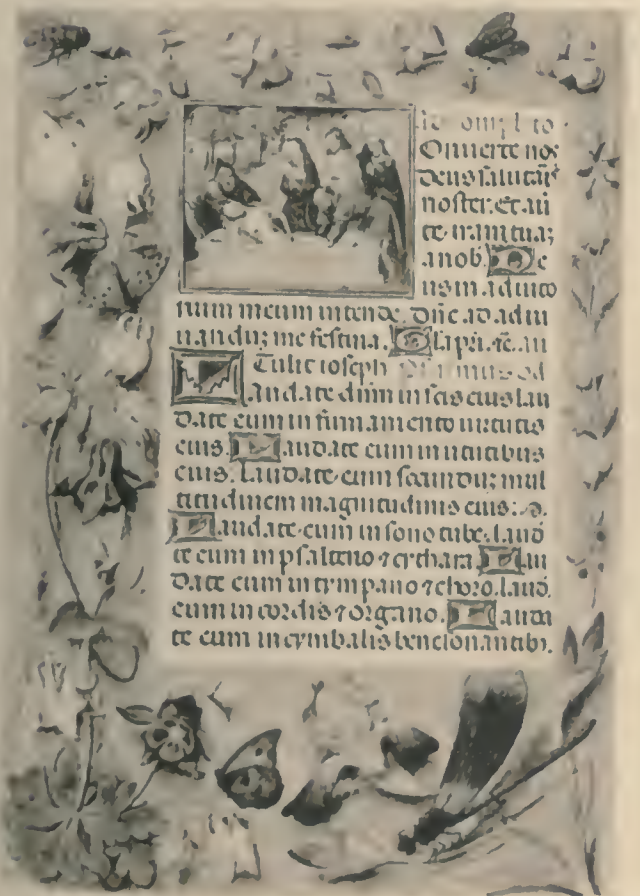 Ad omplto
Onuerte nos
deus salutaꝛ᷑
noster. et aū
te iram tuaꝫ
a nob. De
us in adiuto
rium meum intende. Dn̄e ad adiu
uanduꝫ me festina. Gl̄a pr̄i. an
Tulit ioseph
Laudate dn̄m in scīs eius lau
date eum in firmamento uirtutis
eius. Laudate eum in uirtutibus
eius. Laudate eum secunduꝫ mul
titudinem magnitudinis eius:
Laudate eum in sono tube. Laud
te eum in psalterio ⁊ cythara. Lau
date eum in tympano ⁊ choro. laud.
eum in cordis ⁊ organo. Lauda
te eum in cymbalis benesonantib᷒.